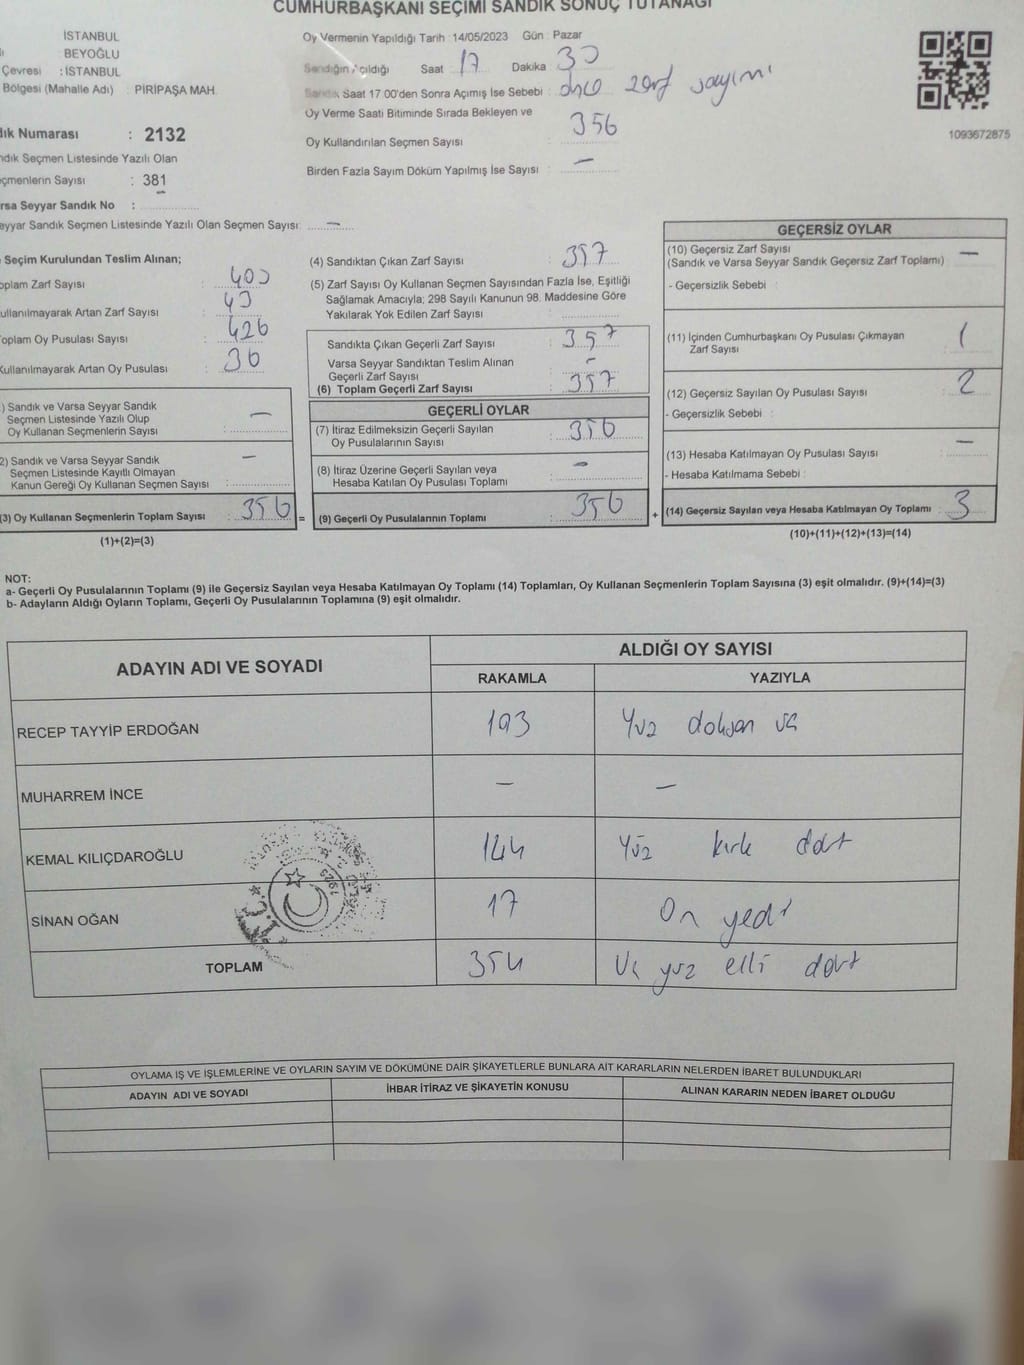 CUMHURBAŞKANI SEÇİMİ SANDIK SONUÇ TUTANAĞI
İSTANBUL
BEYOĞLU
Çevresi : İSTANBUL
Bölgesi (Mahalle Adı) PİRİPAŞA MAH.
Numarası : 2132
Seçmen Listesinde Yazılı Olan
Sayısı : 381
Seyyar Sandık No :
Seçmen Listesinde Yazılı Olan Seçmen Sayısı: —
Oy Vermenin Yapıldığı Tarih : 14/05/2023 Gün : Pazar
Sandığın Açıldığı Saat 17 Dakika 30
Sandık Saat 17.00'den Sonra Açımış İse Sebebi : önce zarf sayımı
Oy Verme Saati Bitiminde Sırada Bekleyen ve
Oy Kullandırılan Seçmen Sayısı : 356
Birden Fazla Sayım Döküm Yapılmış İse Sayısı : —
1093672875
Seçim Kurulundan Teslim Alınan;
Zarf Sayısı : 400
Artan Zarf Sayısı : 43
Oy Pusulası Sayısı : 426
Artan Oy Pusulası : 36
) Sandık ve Varsa Seyyar Sandık
Seçmen Listesinde Yazılı Olup
Oy Kullanan Seçmenlerin Sayısı : —
2) Sandık ve Varsa Seyyar Sandık
Seçmen Listesinde Kayıtlı Olmayan
Kanun Gereği Oy Kullanan Seçmen Sayısı : —
(3) Oy Kullanan Seçmenlerin Toplam Sayısı : 356 =
(1)+(2)=(3)
(4) Sandıktan Çıkan Zarf Sayısı : 357
(5) Zarf Sayısı Oy Kullanan Seçmen Sayısından Fazla İse, Eşitliği
Sağlamak Amacıyla; 298 Sayılı Kanunun 98. Maddesine Göre
Yakılarak Yok Edilen Zarf Sayısı :
Sandıkta Çıkan Geçerli Zarf Sayısı : 357
Varsa Seyyar Sandıktan Teslim Alınan
Geçerli Zarf Sayısı : -
(6) Toplam Geçerli Zarf Sayısı : 357
GEÇERLİ OYLAR
(7) İtiraz Edilmeksizin Geçerli Sayılan
Oy Pusulalarının Sayısı : 356
(8) İtiraz Üzerine Geçerli Sayılan veya
Hesaba Katılan Oy Pusulası Toplamı : —
(9) Geçerli Oy Pusulalarının Toplamı : 356 +
GEÇERSİZ OYLAR
(10) Geçersiz Zarf Sayısı : —
(Sandık ve Varsa Seyyar Sandık Geçersiz Zarf Toplamı)
- Geçersizlik Sebebi :
(11) İçinden Cumhurbaşkanı Oy Pusulası Çıkmayan
Zarf Sayısı : 1
(12) Geçersiz Sayılan Oy Pusulası Sayısı : 2
- Geçersizlik Sebebi :
(13) Hesaba Katılmayan Oy Pusulası Sayısı : —
- Hesaba Katılmama Sebebi :
(14) Geçersiz Sayılan veya Hesaba Katılmayan Oy Toplamı : 3
(10)+(11)+(12)+(13)=(14)
NOT:
a- Geçerli Oy Pusulalarının Toplamı (9) ile Geçersiz Sayılan veya Hesaba Katılmayan Oy Toplamı (14) Toplamları, Oy Kullanan Seçmenlerin Toplam Sayısına (3) eşit olmalıdır. (9)+(14)=(3)
b- Adayların Aldığı Oyların Toplamı, Geçerli Oy Pusulalarının Toplamına (9) eşit olmalıdır.
ADAYIN ADI VE SOYADI
ALDIĞI OY SAYISI
RAKAMLA YAZIYLA
RECEP TAYYİP ERDOĞAN 193 Yüz doksan üç
MUHARREM İNCE — —
KEMAL KILIÇDAROĞLU 144 Yüz kırk dört
SİNAN OĞAN 17 On yedi
TOPLAM 354 Üç yüz elli dört
OYLAMA İŞ VE İŞLEMLERİNE VE OYLARIN SAYIM VE DÖKÜMÜNE DAİR ŞİKAYETLERLE BUNLARA AİT KARARLARIN NELERDEN İBARET BULUNDUKLARI
ADAYIN ADI VE SOYADI İHBAR İTİRAZ VE ŞİKAYETİN KONUSU ALINAN KARARIN NEDEN İBARET OLDUĞU